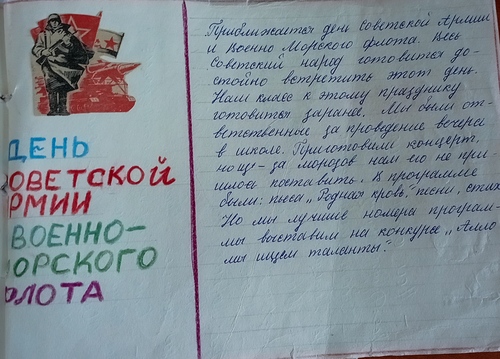 ДЕНЬ
ОВЕТСКОЙ
РМИИ
ВОЕННО-
ОРСКОГО
ФЛОТА
Приближается день Советской Армии
и Военно Морского флота. Весь
советский народ готовится до-
стойно встретить этот день.
Наш класс к этому празднику
готовится заранее. Мы были от-
ветственное за проведение вечера
в школе. Приготовили концерт,
но из-за морозов нам его не при-
шлось поставить. В программе
были: пьеса „Родная кровь", песни, стихи
Но мы лучшие номера програм-
мы выставим на конкурсе „Алло
мы ищем таланты".